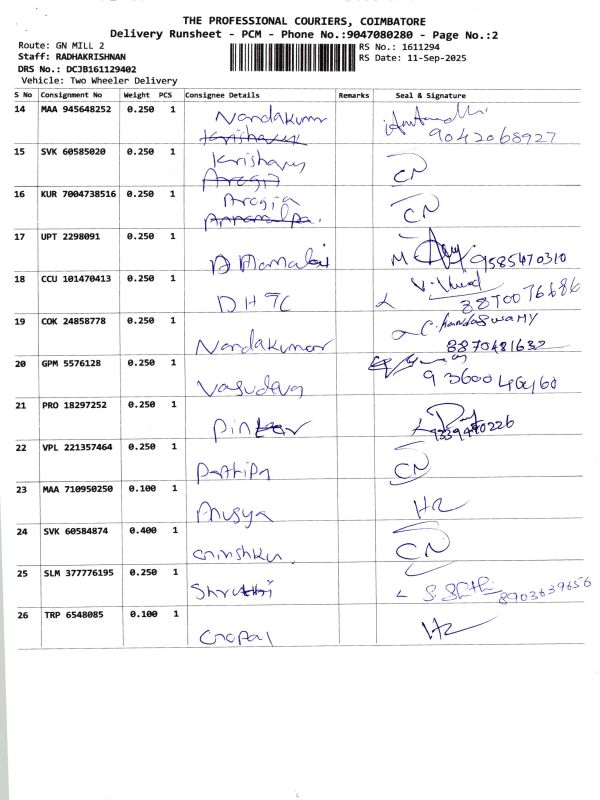 THE PROFESSIONAL COURIERS, COIMBATORE
Delivery Runsheet - PCM - Phone No.:9047080280 - Page No.:2
Route: GN MILL 2
RS No.: 1611294
Staff: RADHAKRISHNAN
RS Date: 11-Sep-2025
DRS No.: DCJB161129402
Vehicle: Two Wheeler Delivery
S No Consignment No Weight PCS Consignee Details Remarks Seal & Signature
14 MAA 945648252 0.250 1 Nandakumr
Krishavy 9042068927
15 SVK 60585020 0.250 1 Krishavy CN
Arogia
16 KUR 7004738516 0.250 1 Arogia CN
17 UPT 2298091 0.250 1 9585470310
18 CCU 101470413 0.250 1 DHTC 8870076686
19 COK 24858778 0.250 1 Nandakumar C. Kandaswamy
8870481632
20 GPM 5576128 0.250 1 Vasudeva 9360046460
21 PRO 18297252 0.250 1 9339480226
22 VPL 221357464 0.250 1 Parthipn CN
23 MAA 710950250 0.100 1 Anusya Hr
24 SVK 60584874 0.400 1 CN
25 SLM 377776195 0.250 1 Shruthi 8903639656
26 TRP 6548085 0.100 1 Gopal Hr